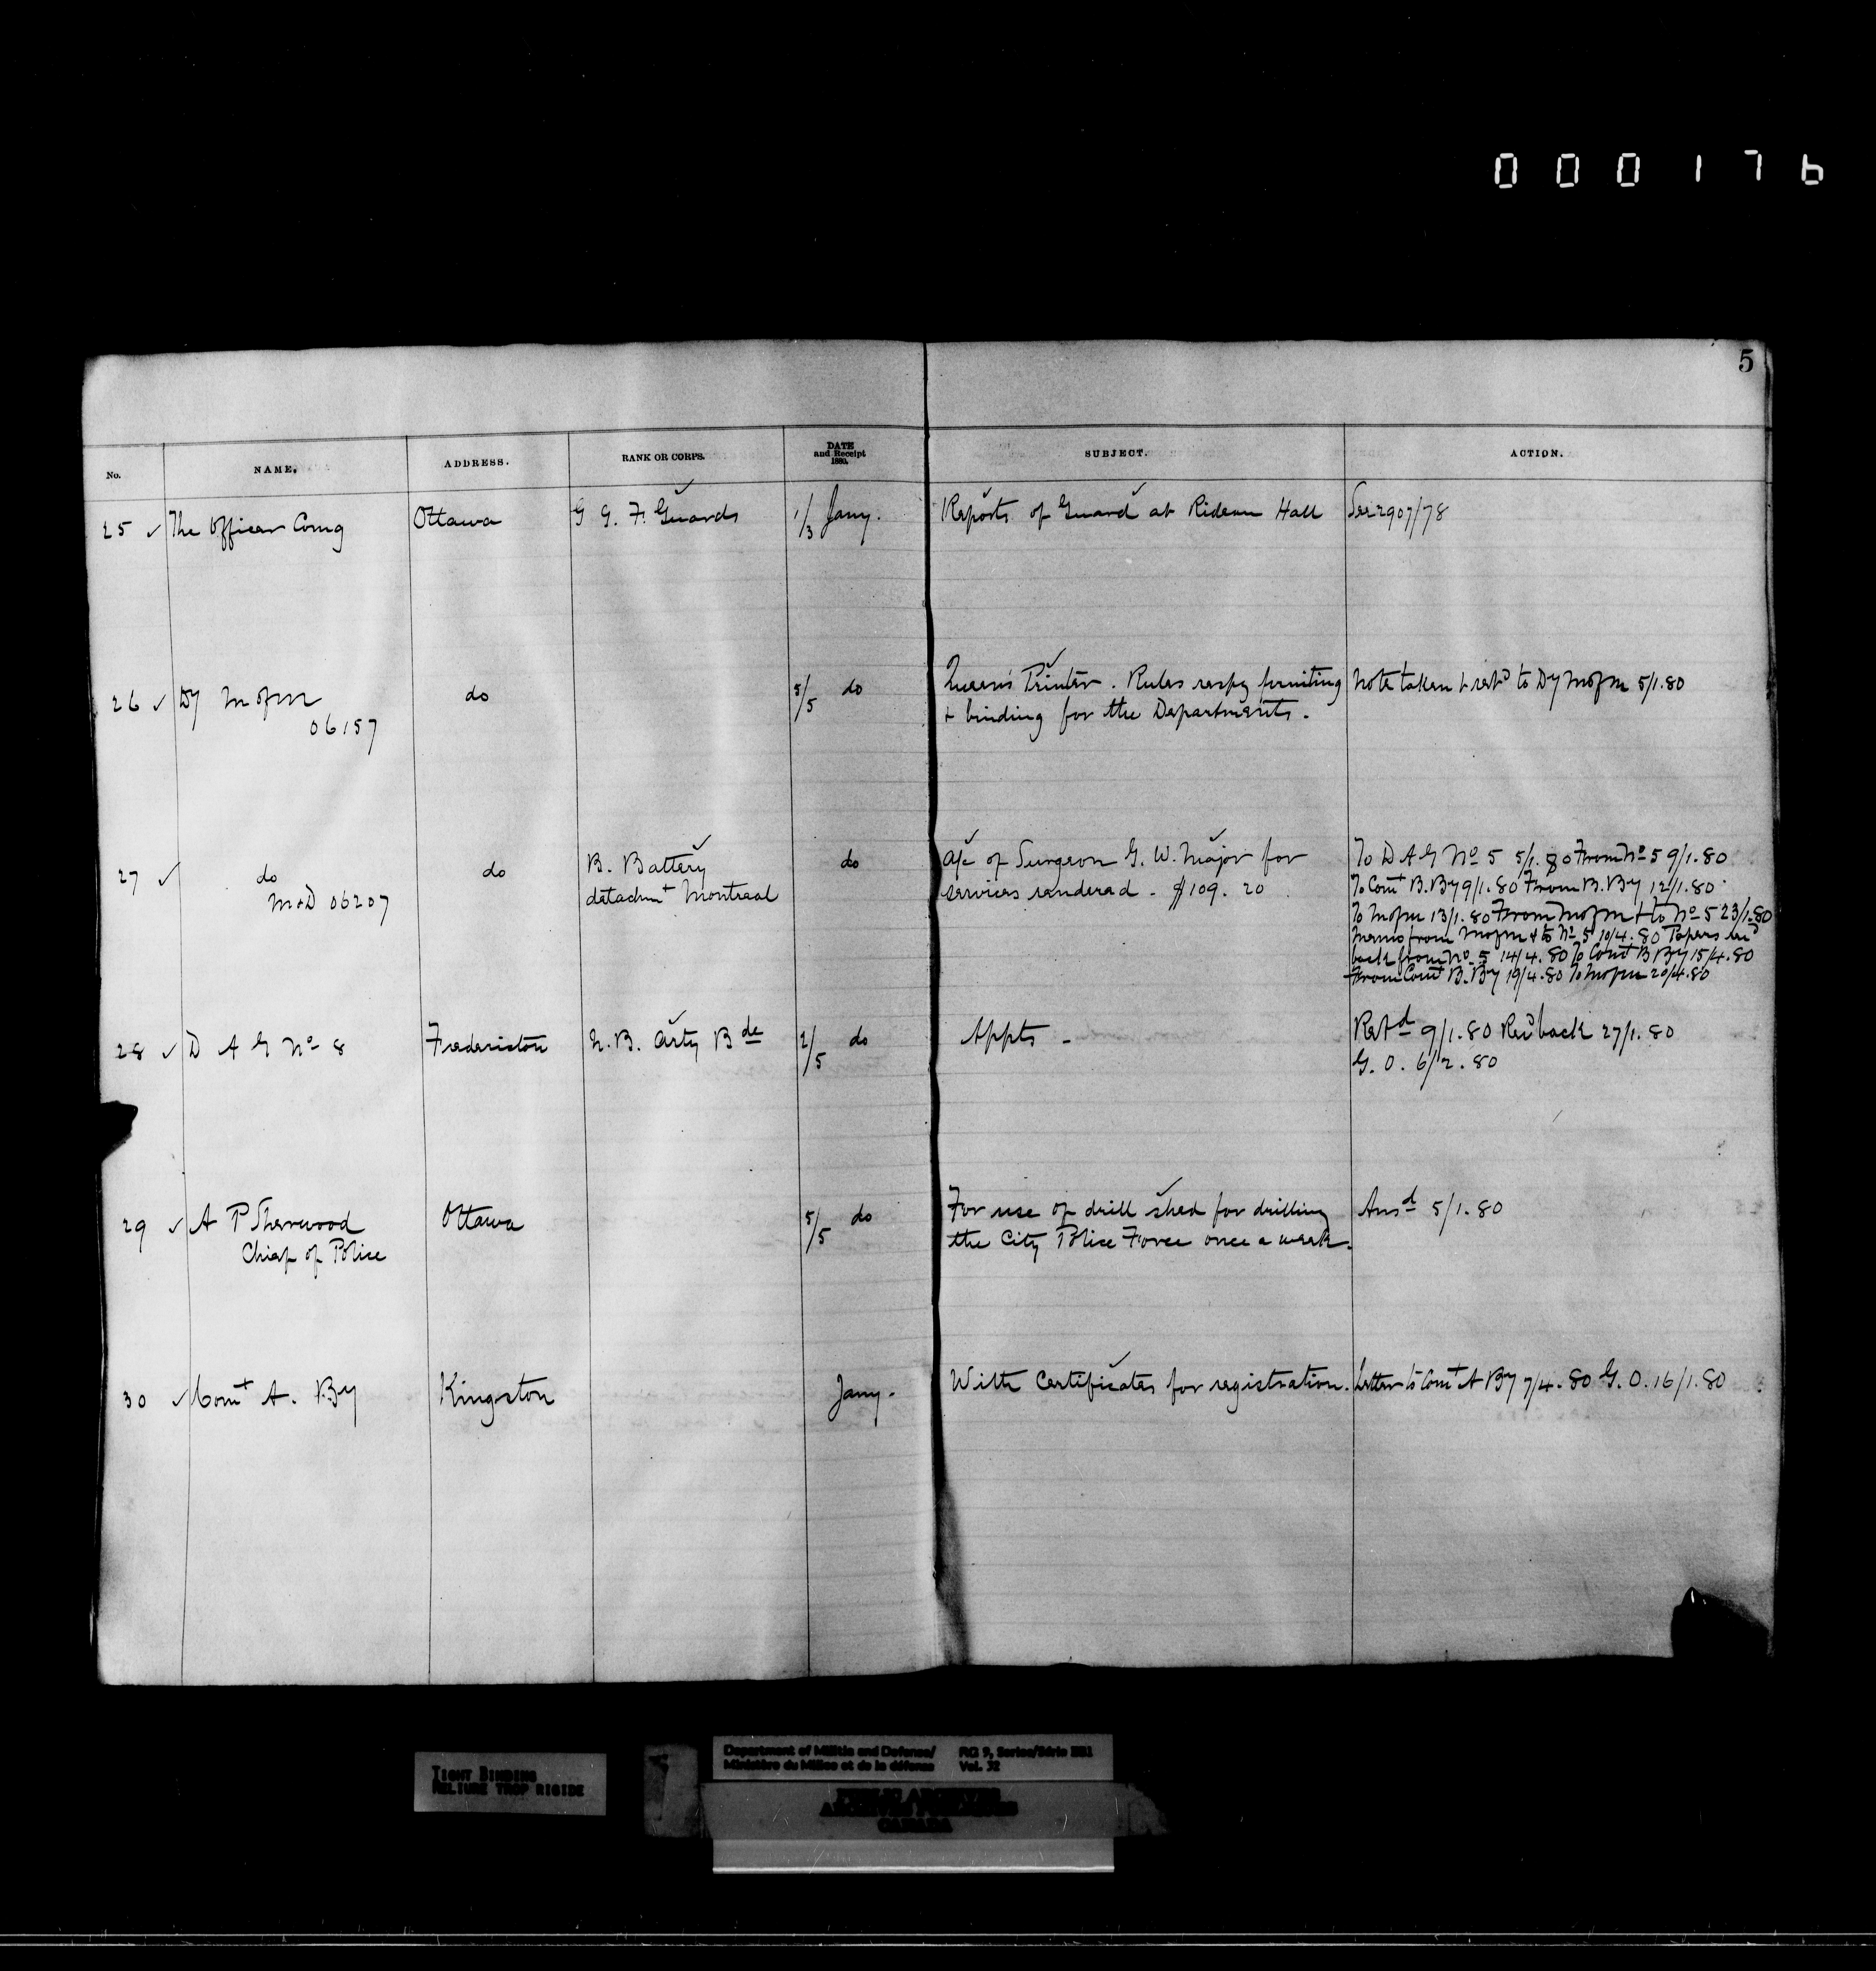 000176
5
No. NAME. ADDRESS. RANK OR CORPS. DATE and Receipt 1880. SUBJECT. ACTION.
25 ✓ The Officer Comg Ottawa G G. F. Guards 1/3 Jany. Reports of Guard at Rideau Hall See 2907/78
26 ✓ Dy M of M do 5/5 do Queen's Printer. Rules respg printing Note taken & retd to Dy M of M 5/1.80
06157 & binding for the Departments.
27 ✓ do do B. Battery do a/c of Surgeon G. W. Major for To D A G No 5 5/1.80 From No 5 9/1.80
M&D 06207 detachmt Montreal services rendered - $109.20 To Comt B. By 9/1.80 From B. By 12/1.80
To M of M 13/1.80 From M of M & to No 5 23/1.80
Memo from M of M & to No 5 10/4.80 Papers recd
back from No 5 14/4.80 To Comt B By 15/4.80
From Comt B. By 19/4.80 To M of M 20/4.80
28 ✓ D A G No 8 Fredericton N. B. Arty Bde 2/5 do Appts - Retd 9/1.80 Recd back 27/1.80
G. O. 6/2.80
29 ✓ A P Sherwood Ottawa 5/5 do For use of drill shed for drilling Ansd 5/1.80
Chief of Police the City Police Force once a week.
30 ✓ Comt A. By Kingston Jany. With Certificates for registration. Letter to Comt A By 7/4.80 G. O. 16/1.80
Department of Militia and Defence/ RG 9, Series/Série IIB1
Ministère du Milice et de la défense Vol. 32
TIGHT BINDING
RELIURE TROP RIGIDE
PUBLIC ARCHIVES
ARCHIVES PUBLIQUES
CANADA